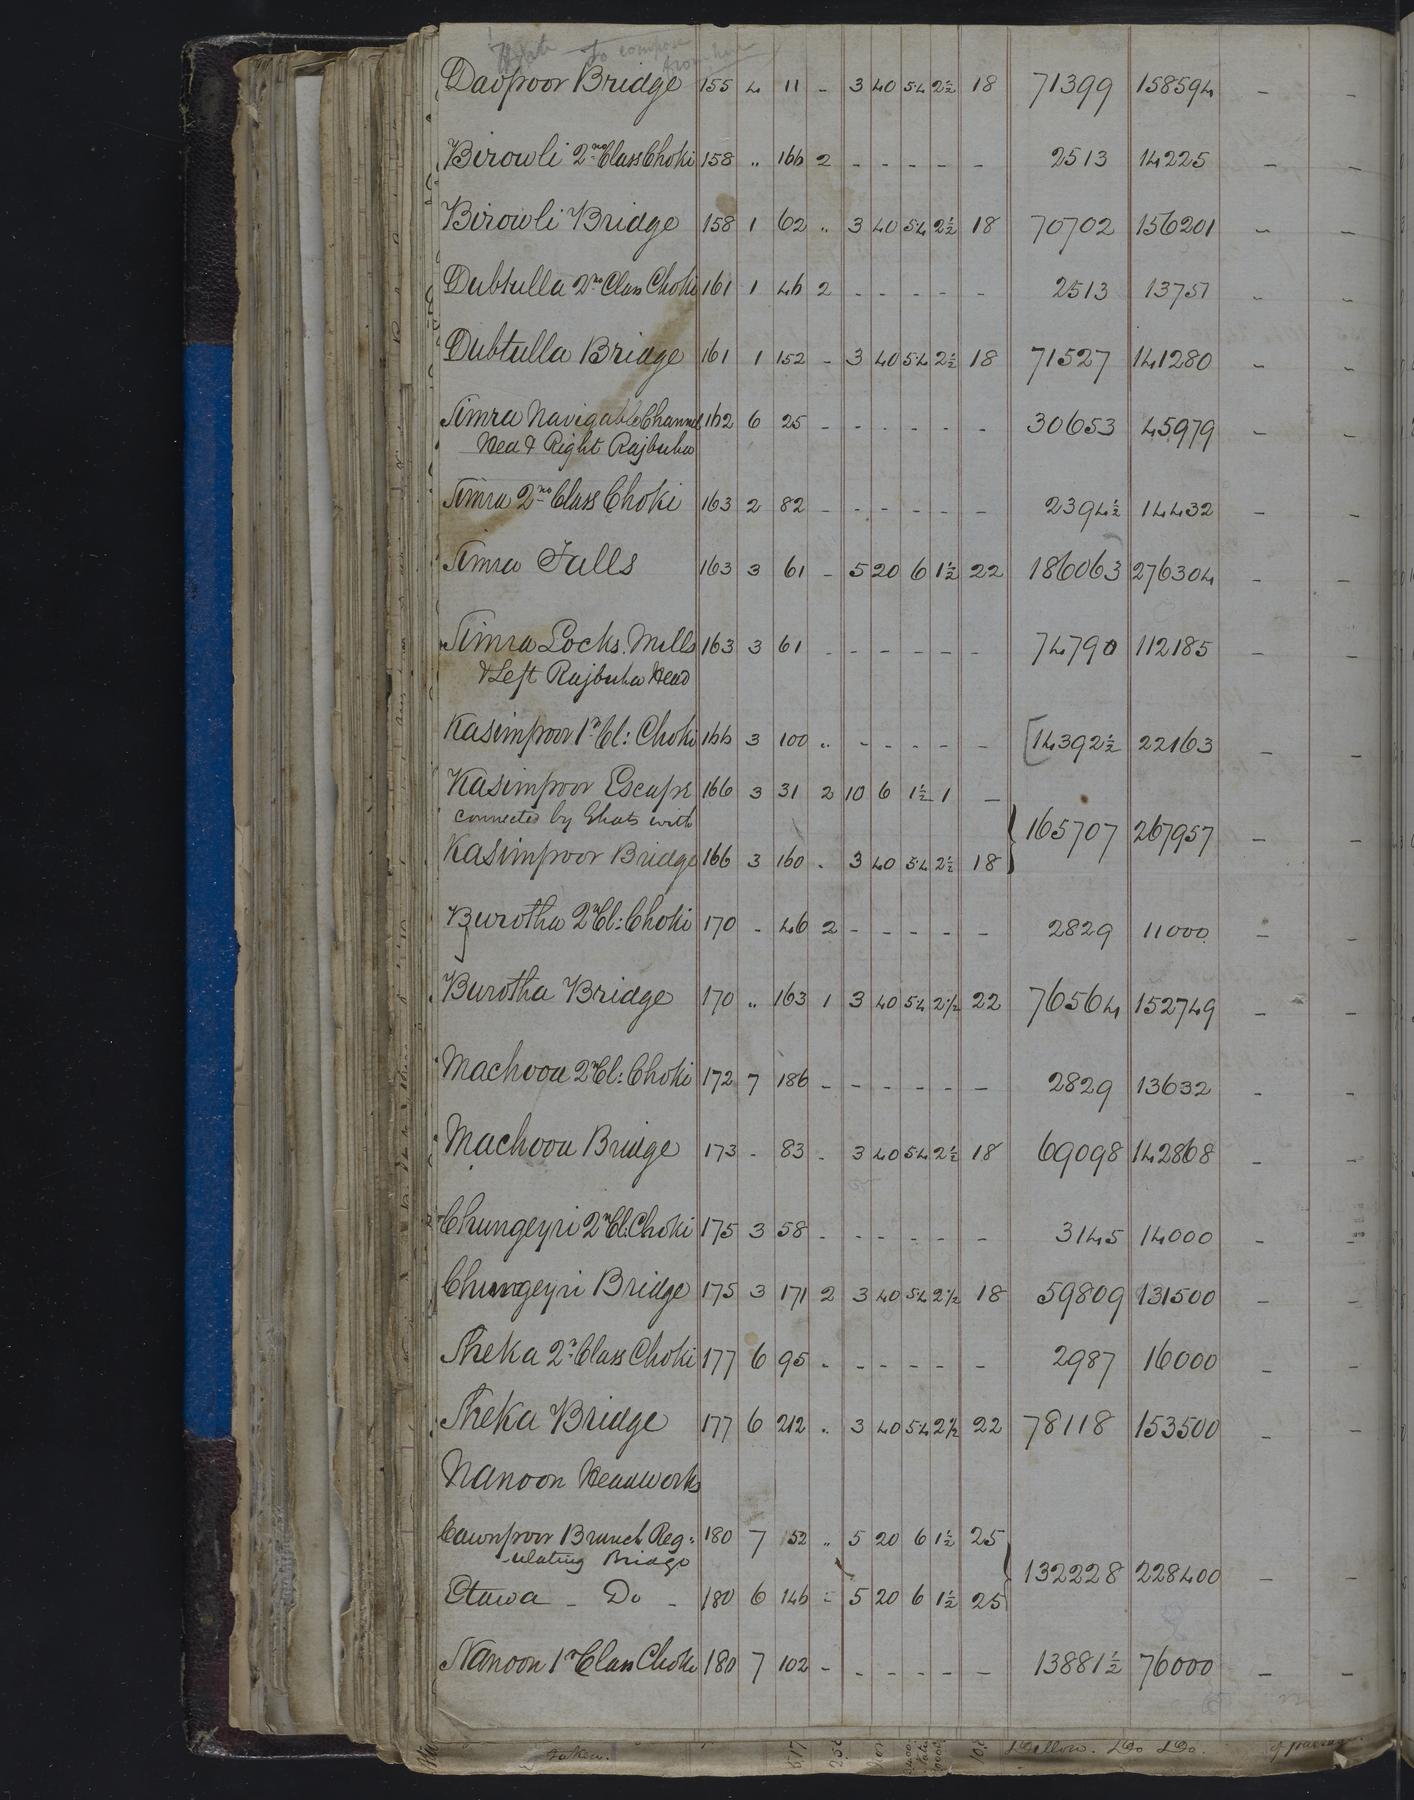 To compare
Daopoor Bridge 155 4 11 - 3 40 54 2½ 18 71399 158594 - -
Birowli 2nd Class Choki 158 " 166 2 - - - - - 2513 14225 - -
Birowli Bridge 158 1 62 " 3 40 54 2½ 18 70702 156201 - -
Dubtulla 2nd Class Choki 161 1 46 2 - - - - - 2513 13751 - -
Dubtulla Bridge 161 1 152 - 3 40 54 2½ 18 71527 141280 - -
Simra Navigable Channel 162 6 25 - - - - - - 30653 45979 - -
Head & Right Rajbuha
Simra 2nd Class Choki 163 2 82 - - - - - - 2394½ 14432 - -
Simra Falls 163 3 61 - 5 20 6 1½ 22 186063 276304 - -
Simra Locks. Mills 163 3 61 - - - - - - 74790 112185 - -
& Left Rajbuha Head
Kasimpoor 1st Cl: Choki 166 3 100 " - - - - - [14392½ 22163 - -
Kasimpoor Escape 166 3 31 2 10 6 1½ 1 -
connected by Ghats with } 165707 267957 - -
Kasimpoor Bridge 166 3 160 - 3 40 54 2½ 18
Burotha 2nd Cl: Choki 170 - 46 2 - - - - - 2829 11000 - -
Burotha Bridge 170 " 163 1 3 40 54 2½ 22 76564 152749 - -
Machooa 2nd Cl: Choki 172 7 186 - - - - - - 2829 13632 - -
Machooa Bridge 173 - 83 - 3 40 54 2½ 18 69098 142868 - -
Chungeyri 2nd Cl: Choki 175 3 58 - - - - - - 3145 14000 - -
Chungeyri Bridge 175 3 171 2 3 40 54 2½ 18 59809 131500 - -
Sheka 2nd Class Choki 177 6 95 - - - - - - 2987 16000 - -
Sheka Bridge 177 6 212 " 3 40 54 2½ 22 78118 153500 - -
Nanoon Headworks
Cawnpoor Branch Reg- 180 7 152 " 5 20 6 1½ 25
-ulating Bridge } 132228 228400 - -
Etawa - Do - 180 6 146 - 5 20 6 1½ 25
Nanoon 1st Class Choki 180 7 102 - - - - - - 13881½ 76000 - -